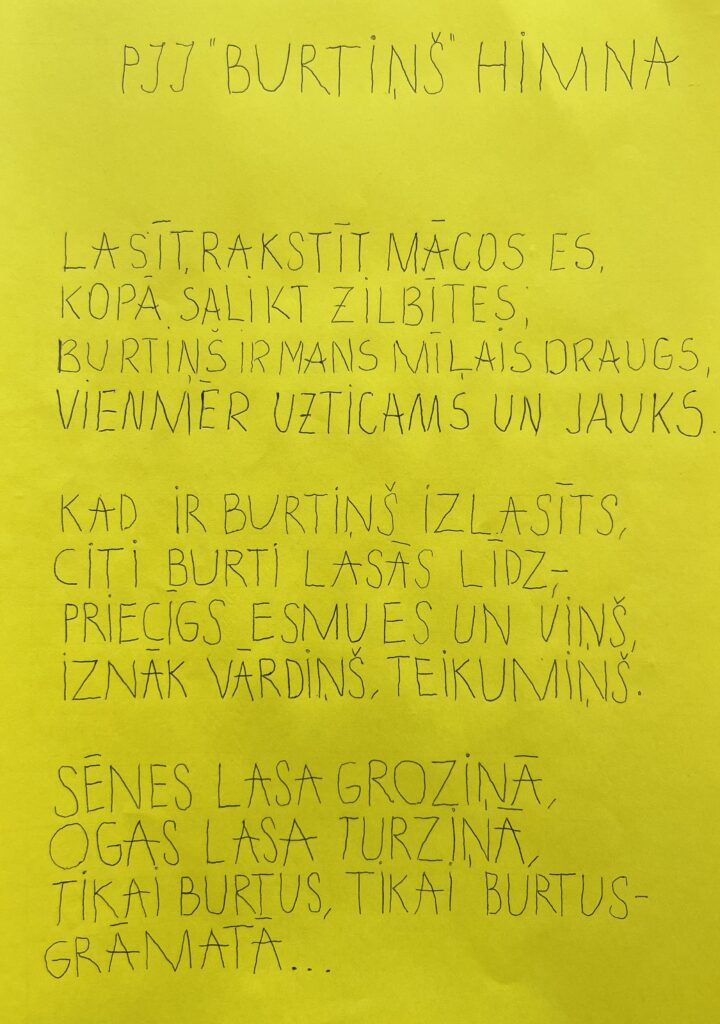 PJJ "BURTIŅŠ" HIMNA
LASĪT, RAKSTĪT MĀCOS ES,
KOPĀ SALIKT ZILBĪTES;
BURTIŅŠ IR MANS MĪĻAIS DRAUGS,
VIENMĒR UZTICAMS UN JAUKS.
KAD IR BURTIŅŠ IZLASĪTS,
CITI BURTI LASĀS LĪDZ,-
PRIECĪGS ESMU ES UN VIŅŠ,
IZNĀK VĀRDIŅŠ, TEIKUMIŅŠ.
SĒNES LASA GROZIŅĀ,
OGAS LASA TURZIŅĀ,
TIKAI BURTUS, TIKAI BURTUS-
GRĀMATĀ...